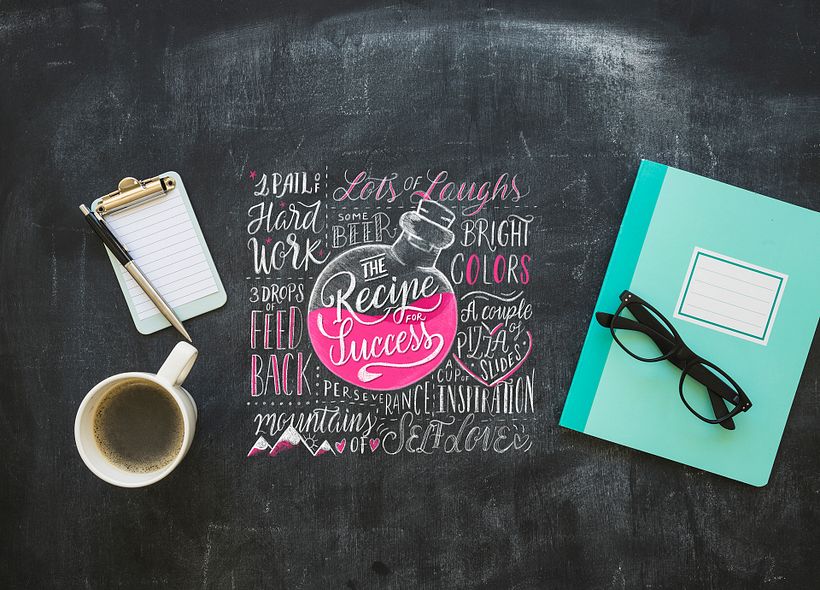 1 PAIL OF
Hard
WORK
Lots OF Laughs
SOME
BEER
BRIGHT
COLORS
THE
Recipe
FOR
Success
3 DROPS
OF
FEED
BACK
A couple
OF
PIZZA
SLIDES
A
CUP OF
INSPIRATION
PERSEVERANCE
mountains
OF
SELF LOVE